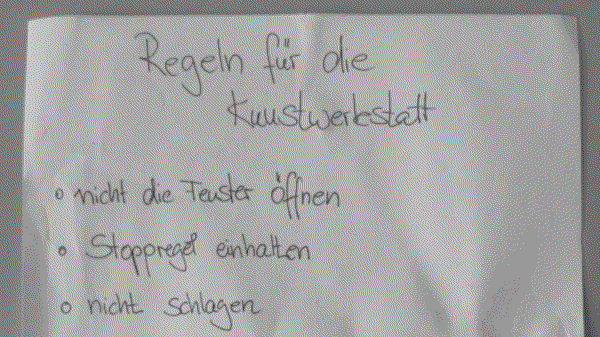 Regeln für die
Kunstwerkstatt
o nicht die Fenster öffnen
o Stoppregel einhalten
o nicht schlagen